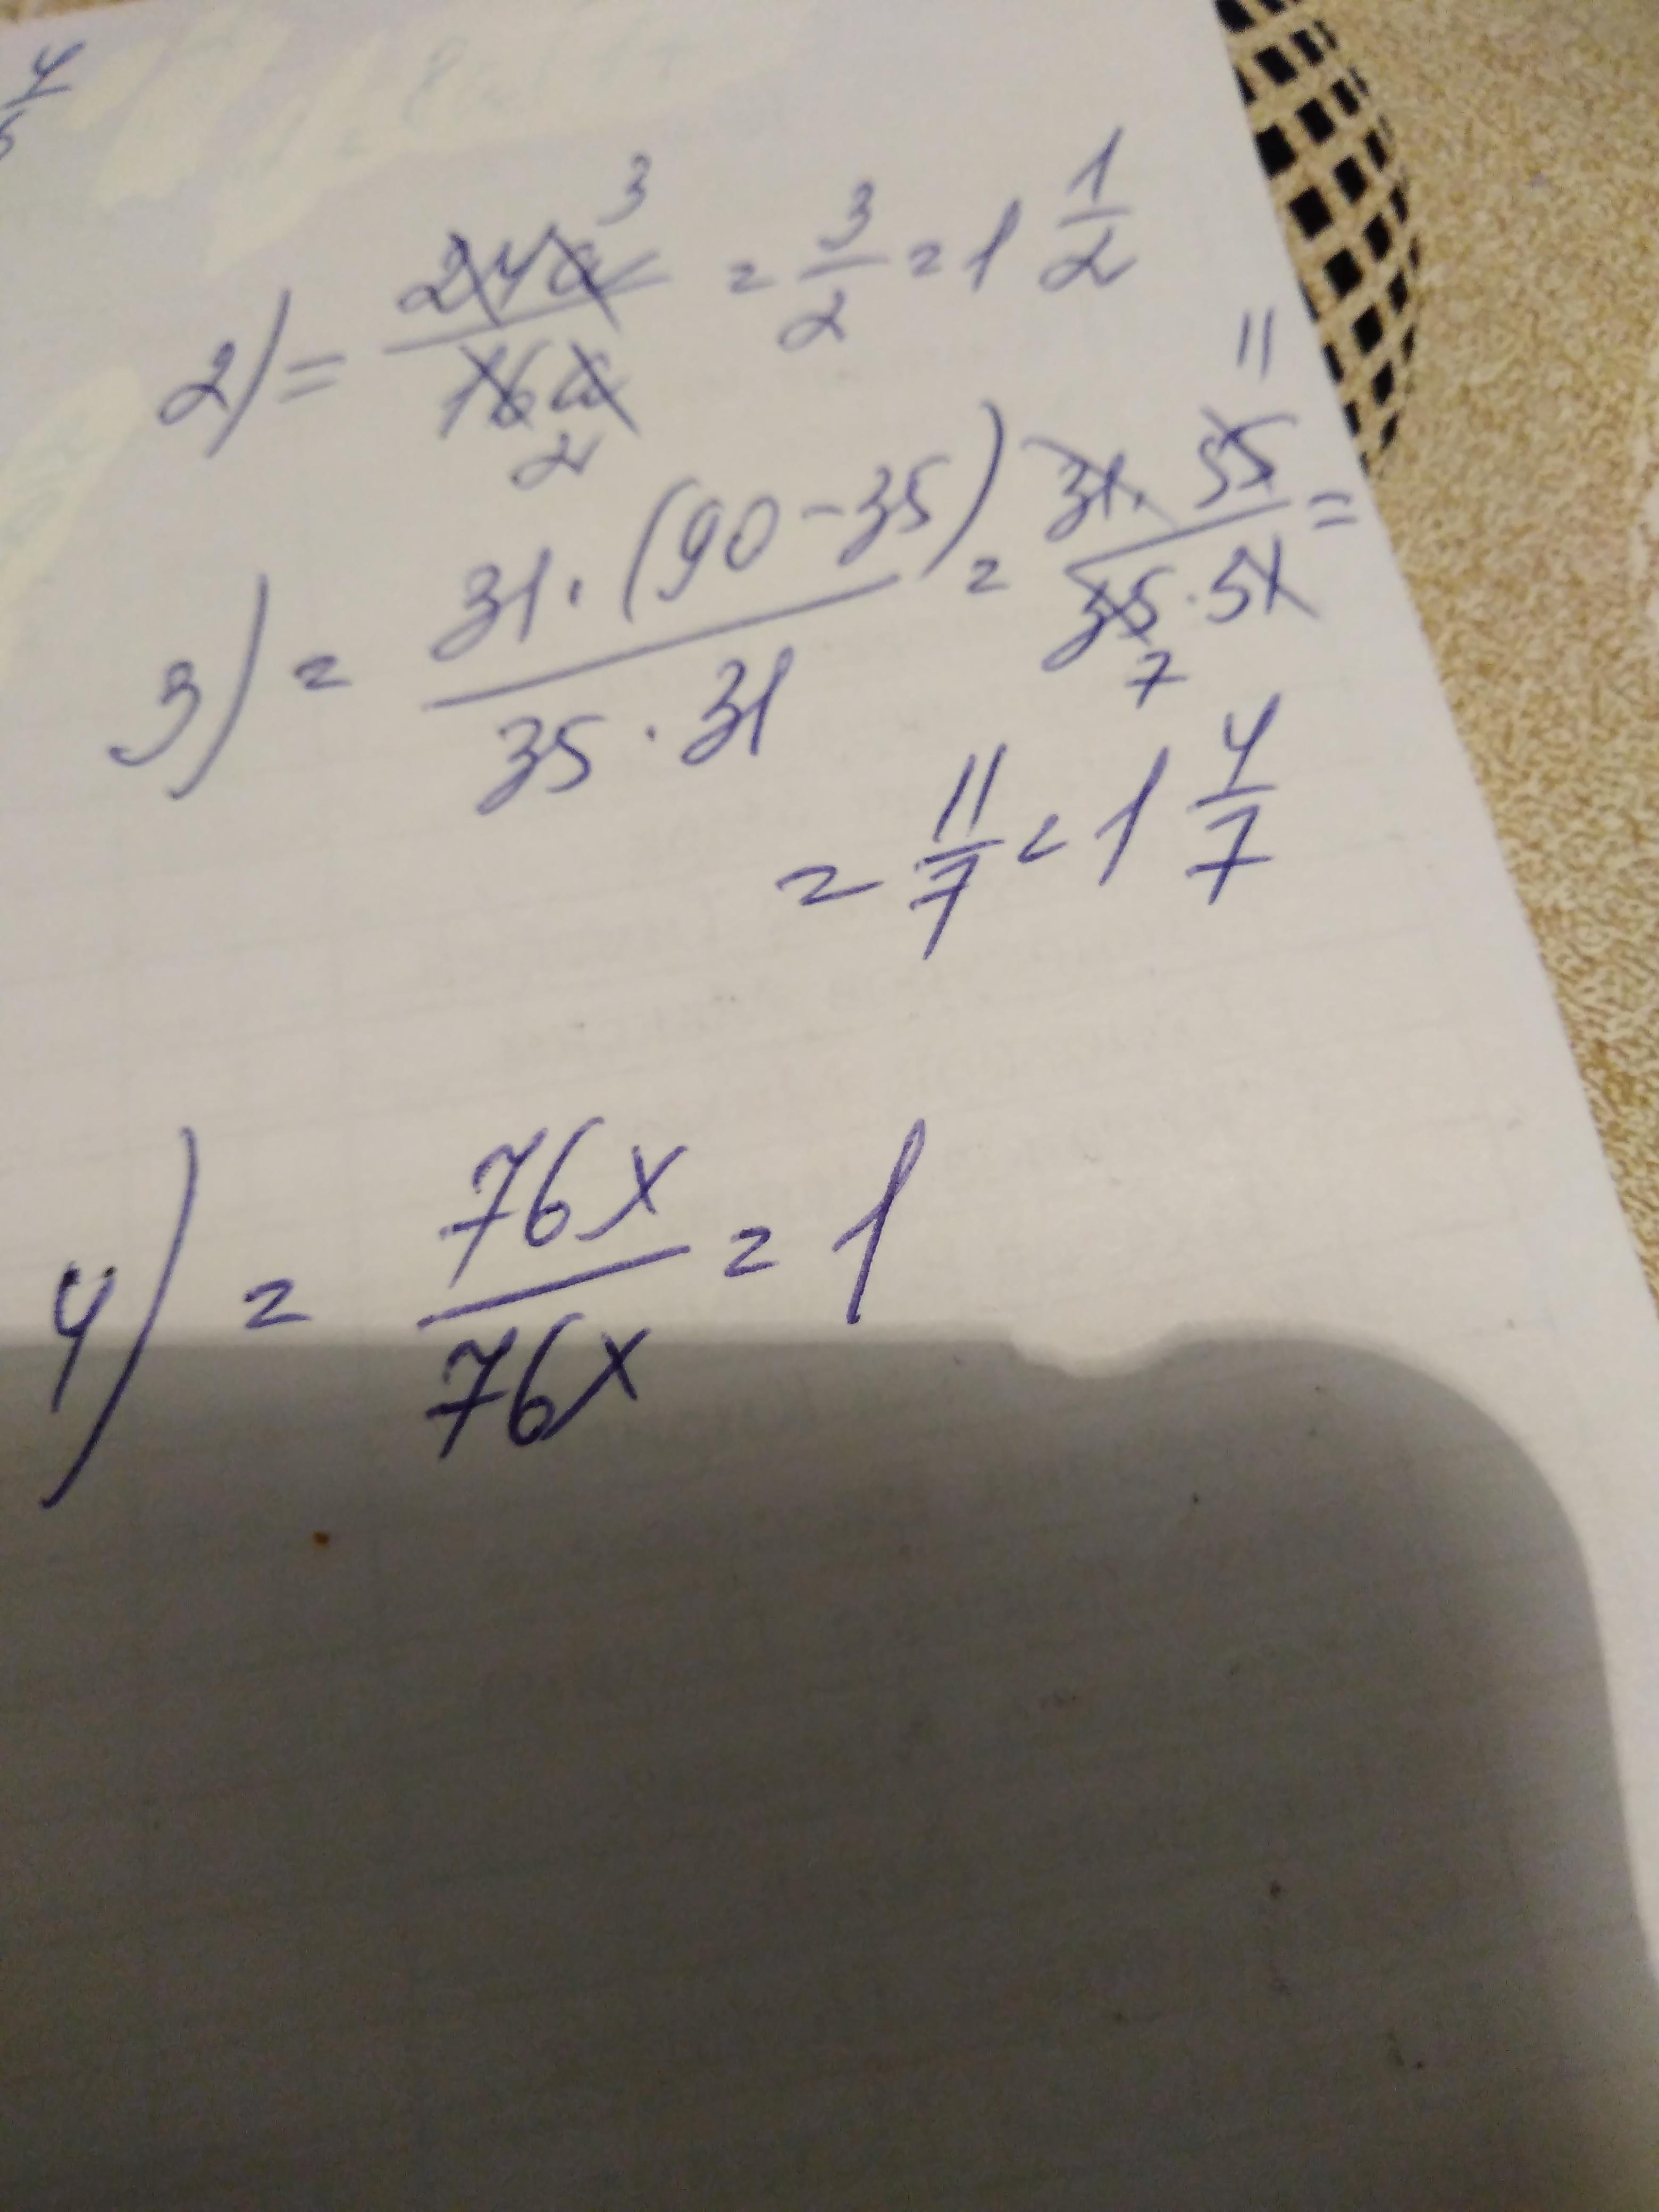 4/5
2) = 24a/16a 3 2 = 3/2 = 1 1/2
3) = 31·(90-35)/35·31 = 31·55/35·51 11 7 =
= 11/7 = 1 4/7
4) = 76x/76x = 1